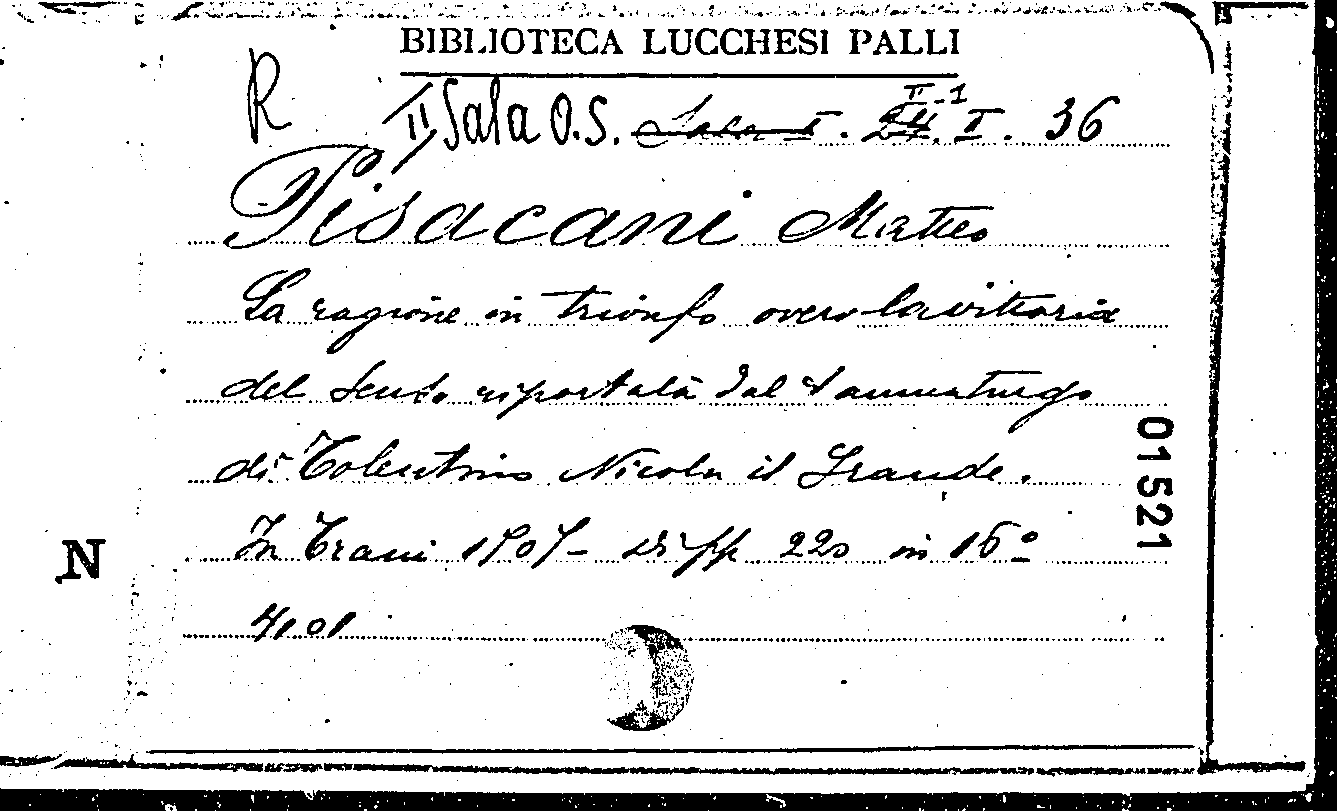 BIBLIOTECA LUCCHESI PALLI
R II Sala O.S. Sala I. II-1 I. 36
Pisacani Matteo
La ragione in trionfo overo la vittoria
del senso riportata dal taumaturgo
di Tolentino Nicola il Grande.
In Trani di pp 220 in 16º
4101
01521
N